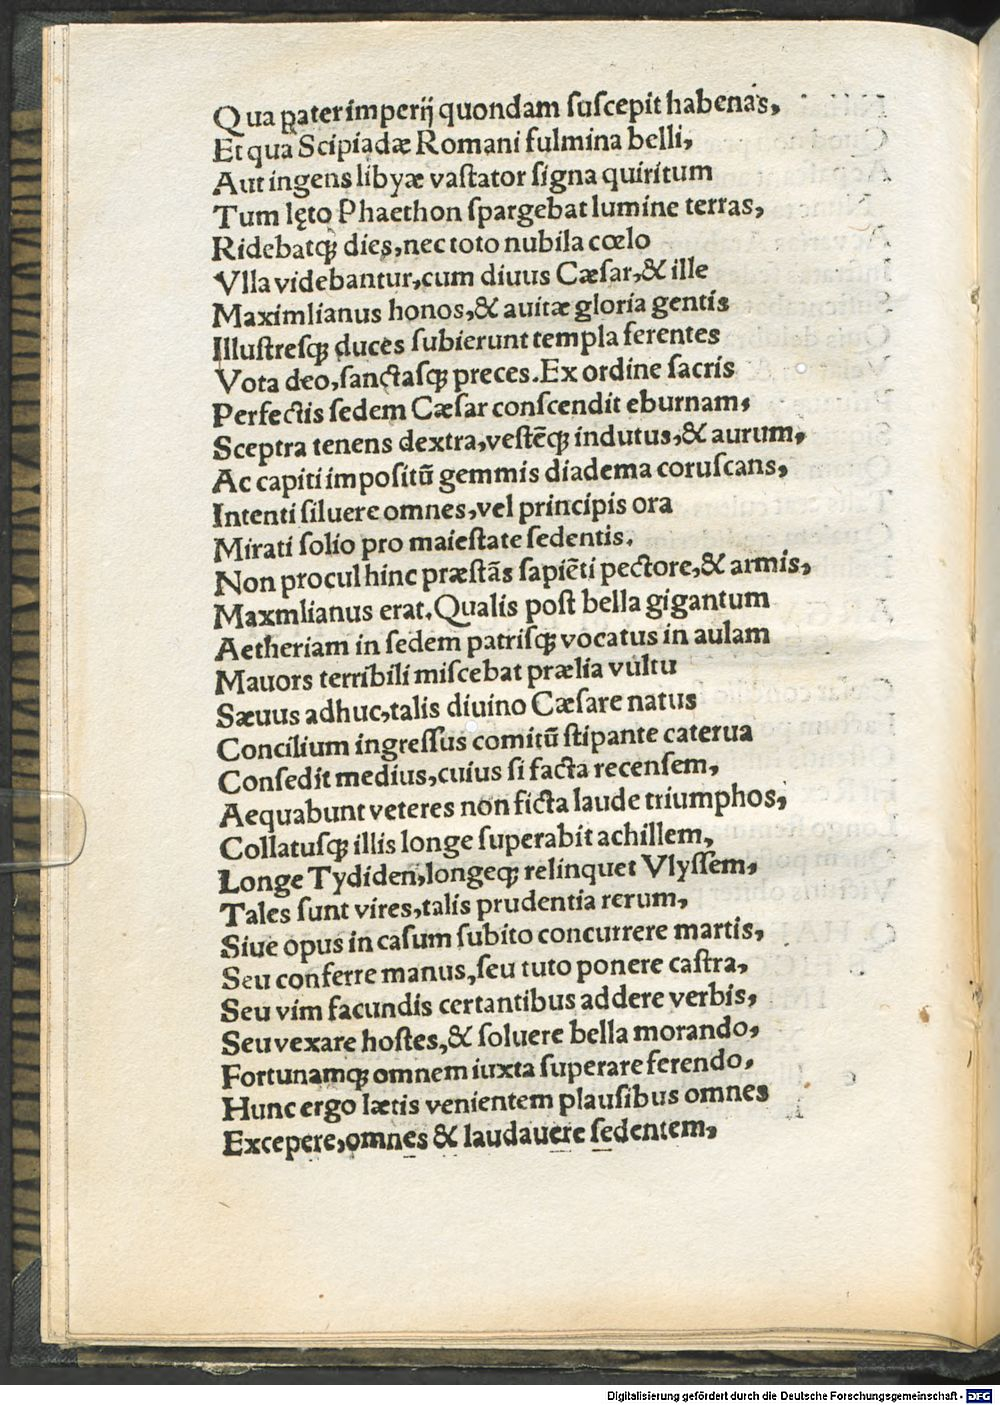 Qua pater imperij quondam ſuſcepit habenas,
Et qua Scipiadæ Romani fulmina belli,
Aut ingens libyæ vaſtator ſigna quiritum
Tum lęto Phaethon ſpargebat lumine terras,
Ridebatqꝫ dies, nec toto nubila cœlo
Vlla videbantur, cum diuus Cæſar, & ille
Maximlianus honos, & auitæ gloria gentis
Illuſtreſqꝫ duces ſubierunt templa ferentes
Vota deo, ſanctaſqꝫ preces. Ex ordine ſacris
Perfectis ſedem Cæſar conſcendit eburnam,
Sceptra tenens dextra, veſtēqꝫ indutus, & aurum,
Ac capiti impoſitū gemmis diadema coruſcans,
Intenti ſiluere omnes, vel principis ora
Mirati ſolio pro maieſtate ſedentis.
Non procul hinc præſtās ſapiēti pectore, & armis,
Maxmlianus erat. Qualis poſt bella gigantum
Aetheriam in ſedem patriſqꝫ vocatus in aulam
Mauors terribili miſcebat prælia vultu
Sæuus adhuc, talis diuino Cæſare natus
Concilium ingreſſus comitū ſtipante caterua
Conſedit medius, cuius ſi facta recenſem,
Aequabunt veteres non ficta laude triumphos,
Collatuſqꝫ illis longe ſuperabit achillem,
Longe Tydiden, longeqꝫ relinquet Vlyſſem,
Tales ſunt vires, talis prudentia rerum,
Siue opus in caſum ſubito concurrere martis,
Seu conferre manus, ſeu tuto ponere caſtra,
Seu vim facundis certantibus addere verbis,
Seu vexare hoſtes, & ſoluere bella morando,
Fortunamqꝫ omnem iuxta ſuperare ferendo,
Hunc ergo lætis venientem plauſibus omnes
Excepere, omnes & laudauere ſedentem,
Digitalisierung gefördert durch die Deutsche Forschungsgemeinschaft - DFG